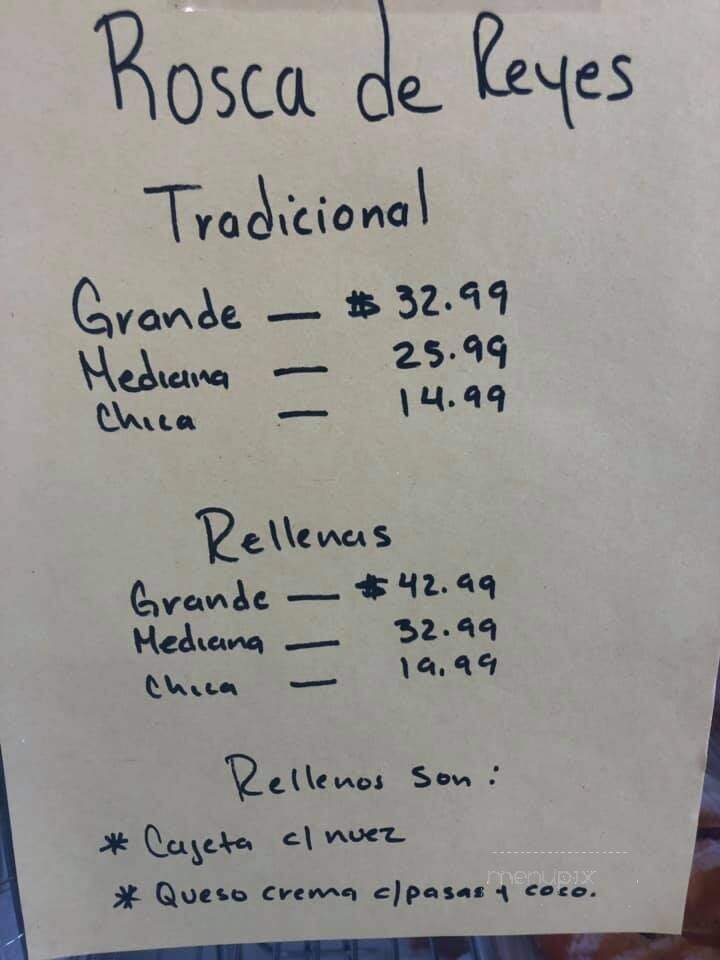 Rosca de Reyes
Tradicional
Grande — $ 32.99
Mediana — 25.99
Chica — 14.99
Rellenas
Grande — $ 42.99
Mediana — 32.99
Chica — 19.99
Rellenos son:
* Cajeta c/ nuez
* Queso crema c/pasas y coco.
menupix